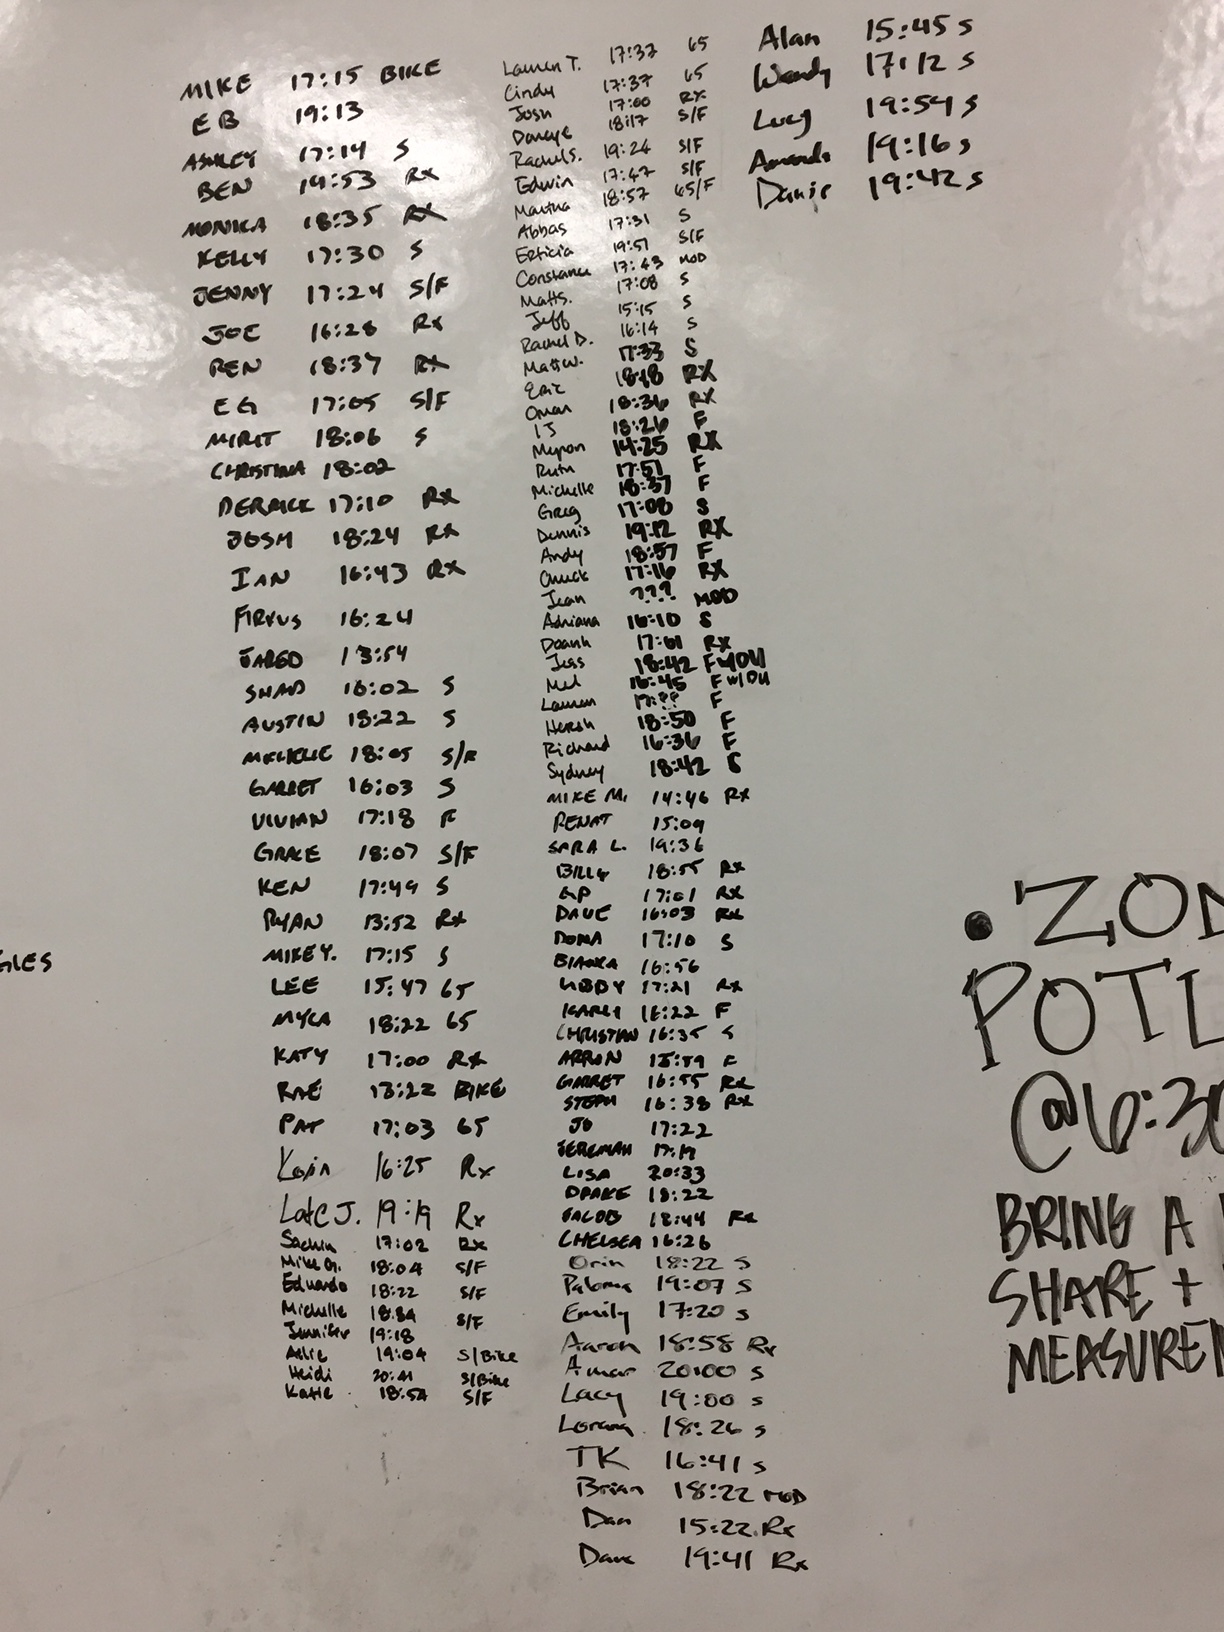 MIKE 17:15 BIKE
EB 19:13
ASHLEY 17:14 S
BEN 19:53 RX
MONIKA 18:35 RX
KELLY 17:30 S
JENNY 17:24 S/F
JOE 16:28 RX
REN 18:37 RX
EG 17:05 S/F
MIRIT 18:06 S
CHRISTINA 18:02
DERRICK 17:10 RX
JOSH 18:24 RX
IAN 16:43 RX
16:24
JARED 13:54
SHAD 16:02 S
AUSTIN 18:22 S
18:05 S/F
GARRET 16:03 S
VIVIAN 17:18 F
GRACE 18:07 S/F
KEN 17:49 S
RYAN 13:52 RX
MIKEY. 17:15 S
LEE 15:47 65
MYCA 18:22 65
KATY 17:00 RX
RAE 13:22 BIKE
PAT 17:03 65
16:25 Rx
Late J. 19:19 Rx
Sachin 17:02 RX
Mike G. 18:04 S/F
Eduardo 18:22 S/F
Michelle S/F
Jennifer 19:18
19:04 S/Bike
Heidi 20:41 S/Bike
Katie 18:54 S/F
Lauren T. 17:37 65
Cindy 17:37 65
Josh 17:00 RX
18:17 S/F
Rachel S. 19:24 S/F
Edwin 17:47 S/F
Martha 18:57 65/F
Abbas 17:31 S
19:51 S/F
Constance 17:43 MOD
Matt S. 17:08 S
Jeff 15:15 S
Rachel D. 16:14 S
Matt W. 17:33 S
Eric 18:18 RX
Omar 18:36 RX
18:26 F
Myron 14:25 RX
Ruth 17:51 F
Michelle 18:37 F
Greg 17:08 S
Dennis 19:12 RX
Andy 18:57 F
Chuck 17:16 RX
Jean ??? MOD
Adriana 16:10 S
Doanh 17:01 RX
Jess 18:42 F W/DU
Mel 16:45 F W/DU
Lauren 17:?? F
Hersh 18:50 F
Richard 16:36 F
Sydney 18:42 S
MIKE M. 14:46 RX
RENAT 15:09
SARA L. 19:36
BILLY 18:55 RX
GP 17:01 RX
DAVE 16:03 RX
17:10 S
BIANKA 16:56
17:21 RX
16:22 F
CHRISTIAN 16:35 S
ARRON F
GARRET 16:55 RX
STEPH 16:38 RX
JO 17:22
JEREMIAH 17:19
LISA 20:33
DRAKE 18:22
JACOB 18:44 RX
CHELSEA 16:26
Orin 18:22 S
Paloma 19:07 S
Emily 17:20 S
Aaron 18:58 Rx
Amar 20:00 S
Lacy 19:00 S
18:26 S
TK 16:41 S
Brian 18:22 MOD
Dan 15:22 Rx
Dave 19:41 Rx
Alan 15:45 S
Wendy 17:12 S
Lucy 19:54 S
Amanda 19:16 S
19:42 S
GLES
• ZO
POTL
@6:30
BRING A
SHARE +
MEASUREM